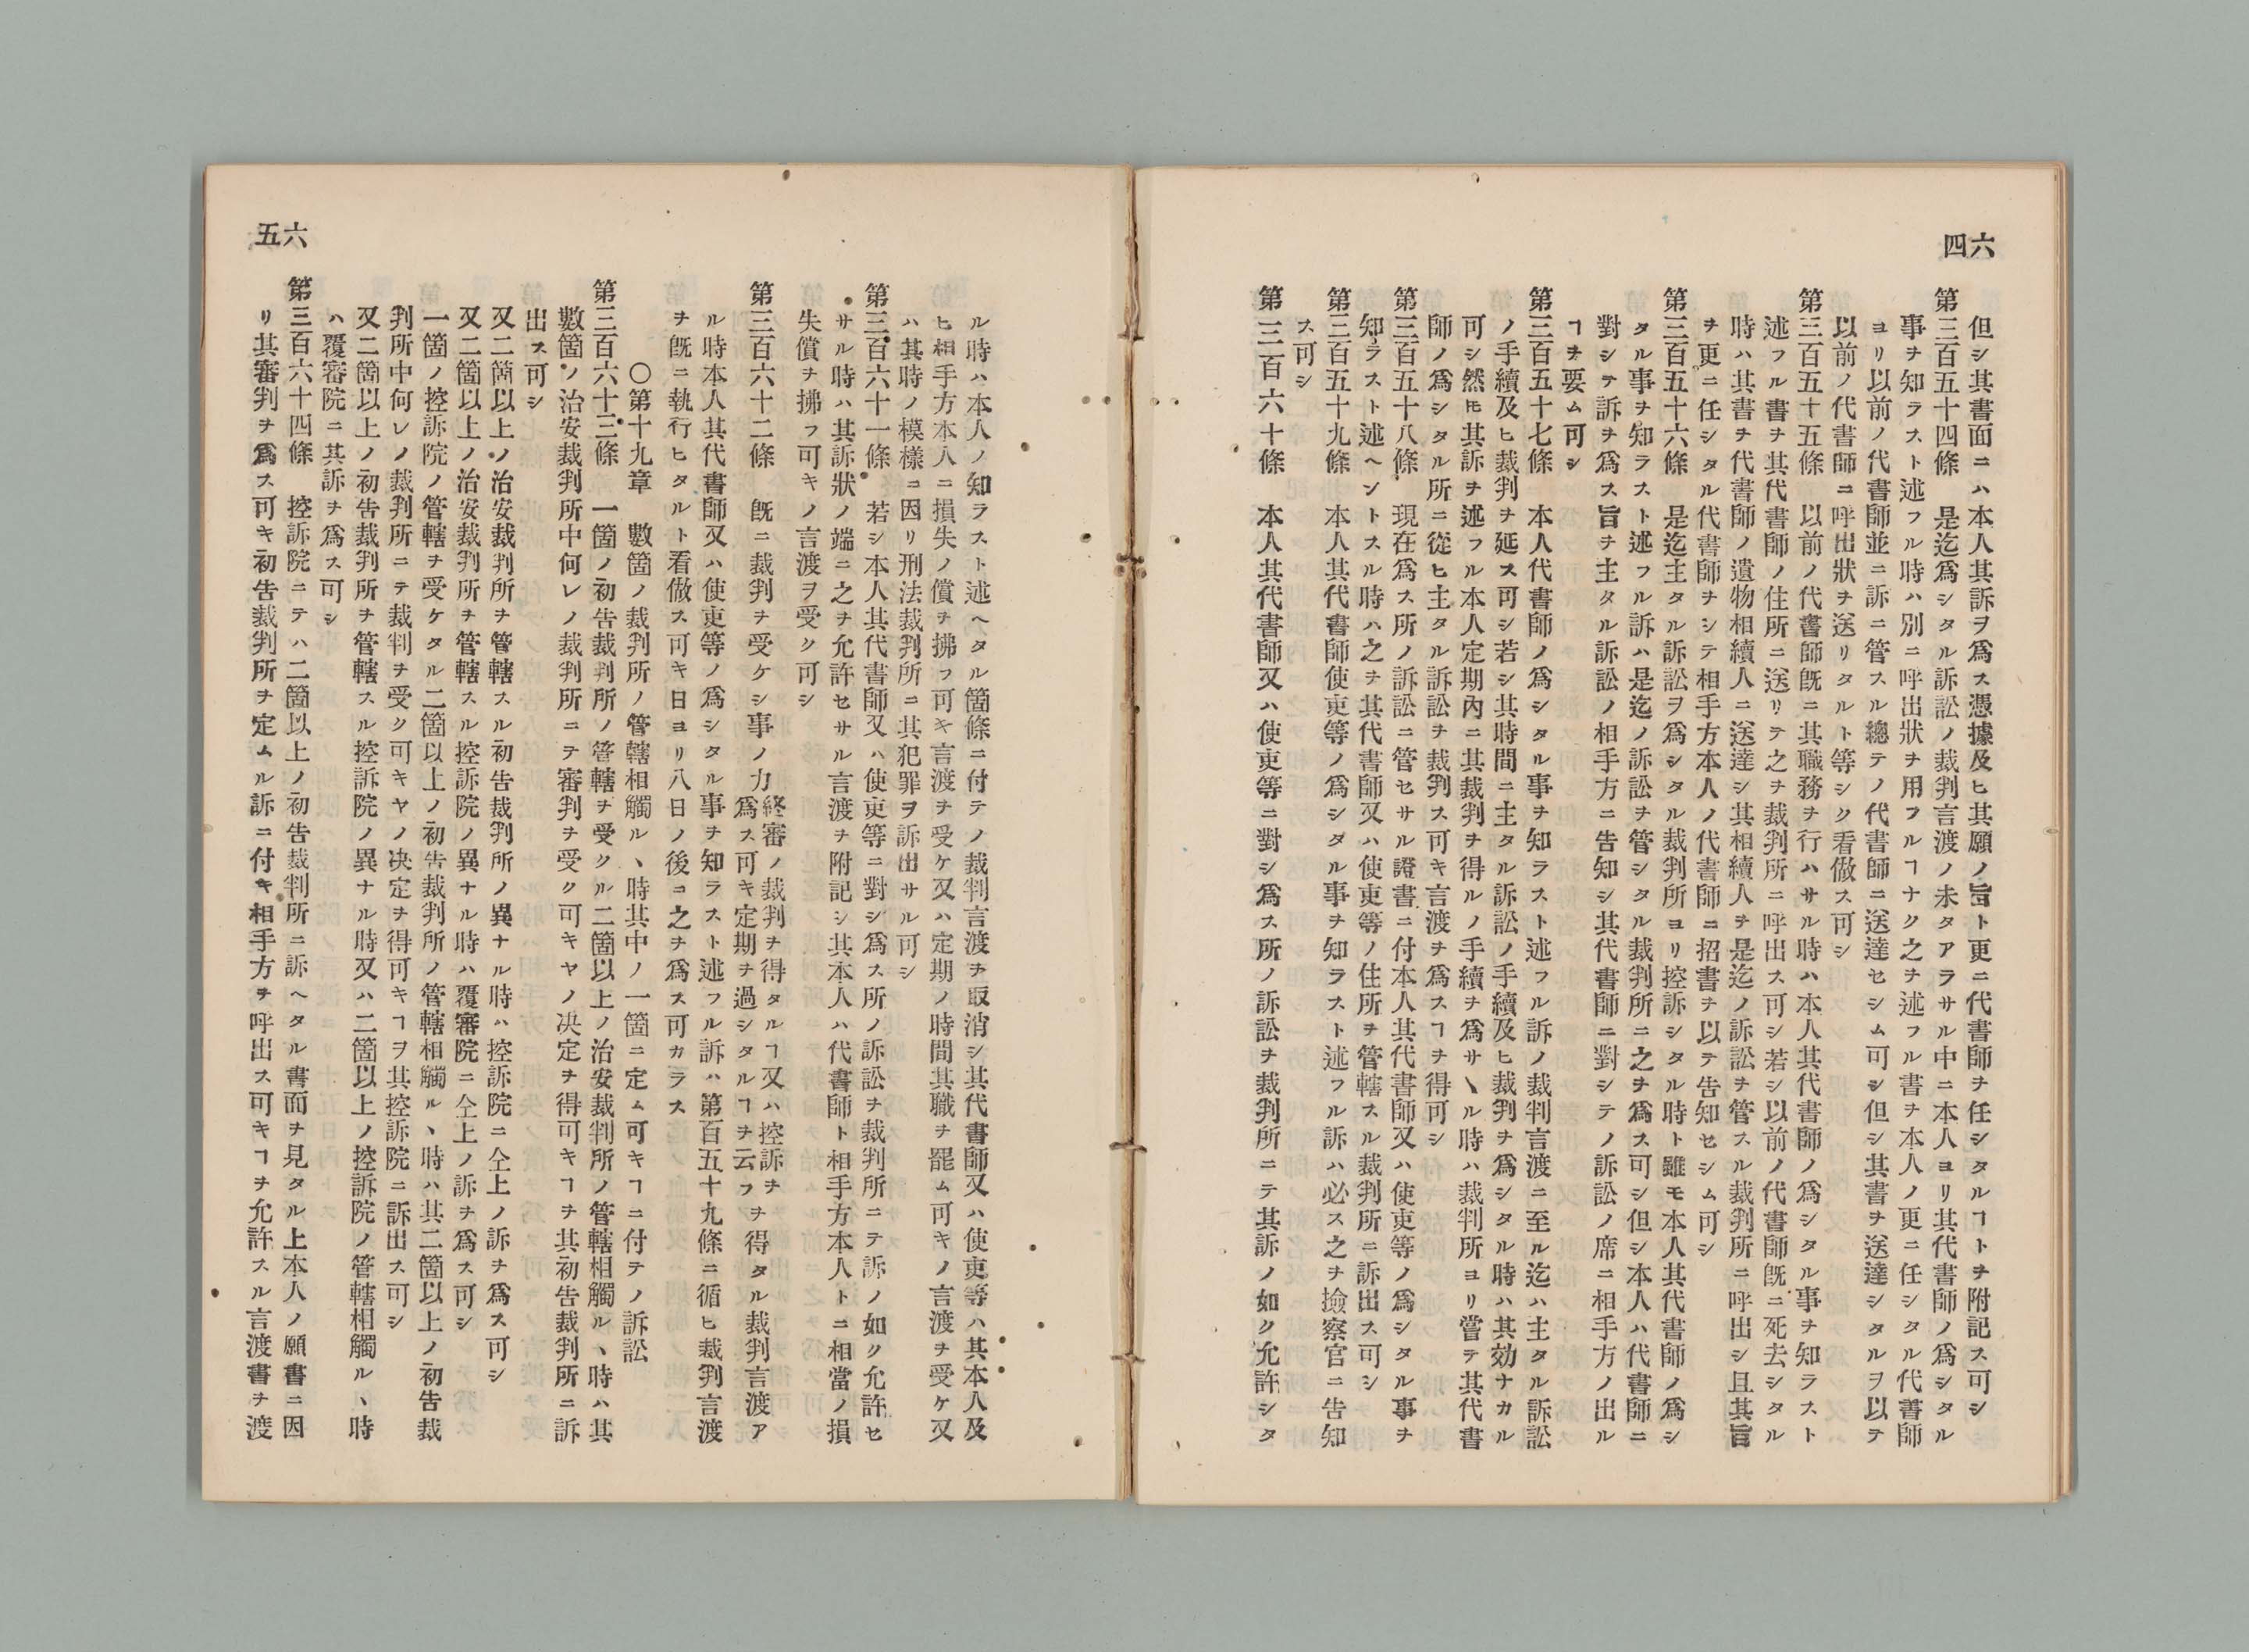 六四
但シ其書面ニハ本人其訴ヲ爲ス憑據及ヒ其願ノ旨ト更ニ代書師ヲ任シタルヿトヲ附記ス可シ
第三百五十四條 是迄爲シタル訴訟ノ裁判言渡ノ未タアラサル中ニ本人ヨリ其代書師ノ爲シタル
事ヲ知ラスト述フル時ハ別ニ呼出狀ヲ用フルヿナク之ヲ述フル書ヲ本人ノ更ニ任シタル代書師
ヨリ以前ノ代書師並ニ訴ニ管スル總テノ代書師ニ送達セシム可シ但シ其書ヲ送達シタルヲ以テ
以前ノ代書師ニ呼出狀ヲ送リタルト等シク看做ス可シ
第三百五十五條 以前ノ代書師旣ニ其職務ヲ行ハサル時ハ本人其代書師ノ爲シタル事ヲ知ラスト
述フル書ヲ其代書師ノ住所ニ送リテ之ヲ裁判所ニ呼出ス可シ若シ以前ノ代書師旣ニ死去シタル
時ハ其書ヲ代書師ノ遺物相續人ニ送達シ其相續人ヲ是迄ノ訴訟ヲ管スル裁判所ニ呼出シ且其旨
ヲ更ニ任シタル代書師ヲシテ相手方本人ノ代書師ニ招書ヲ以テ告知セシム可シ
第三百五十六條 是迄主タル訴訟ヲ爲シタル裁判所ヨリ控訴シタル時ト雖モ本人其代書師ノ爲シ
タル事ヲ知ラスト述フル訴ハ是迄ノ訴訟ヲ管シタル裁判所ニ之ヲ爲ス可シ但シ本人ハ代書師ニ
對シテ訴ヲ爲ス旨ヲ主タル訴訟ノ相手方ニ告知シ其代書師ニ對シテノ訴訟ノ席ニ相手方ノ出ル
ヿヲ要ム可シ
第三百五十七條 本人代書師ノ爲シタル事ヲ知ラスト述フル訴ノ裁判言渡ニ至ル迄ハ主タル訴訟
ノ手續及ヒ裁判ヲ延ス可シ若シ其時間ニ主タル訴訟ノ手續及ヒ裁判ヲ爲シタル時ハ其効ナカル
可シ然𪜈其訴ヲ述フル本人定期內ニ其裁判ヲ得ルノ手續ヲ爲サヽル時ハ裁判所ヨリ嘗テ其代書
師ノ爲シタル所ニ從ヒ主タル訴訟ヲ裁判ス可キ言渡ヲ爲スヿヲ得可シ
第三百五十八條 現在爲ス所ノ訴訟ニ管セサル證書ニ付本人其代書師又ハ使吏等ノ爲シタル事ヲ
知ラスト述ヘントスル時ハ之ヲ其代書師又ハ使吏等ノ住所ヲ管轄スル裁判所ニ訴出ス可シ
第三百五十九條 本人其代書師使吏等ノ爲シタル事ヲ知ラスト述フル訴ハ必ス之ヲ撿察官ニ告知
ス可シ
第三百六十條 本人其代書師又ハ使吏等ニ對シ爲ス所ノ訴訟ヲ裁判所ニテ其訴ノ如ク允許シタ
六五
ル時ハ本人ノ知ラスト述ヘタル箇條ニ付テノ裁判言渡ヲ取消シ其代書師又ハ使吏等ハ其本人及
ヒ相手方本人ニ損失ノ償ヲ拂フ可キ言渡ヲ受ケ又ハ定期ノ時間其職ヲ罷ム可キノ言渡ヲ受ケ又
ハ其時ノ模樣ニ因リ刑法裁判所ニ其犯罪ヲ訴出サル可シ
第三百六十一條 若シ本人其代書師又ハ使吏等ニ對シ爲ス所ノ訴訟ヲ裁判所ニテ訴ノ如ク允許セ
サル時ハ其訴狀ノ端ニ之ヲ允許セサル言渡ヲ附記シ其本人ハ代書師ト相手方本人トニ相當ノ損
失償ヲ拂フ可キノ言渡ヲ受ク可シ
第三百六十二條 旣ニ裁判ヲ受ケシ事ノ力終審ノ裁判ヲ得タルヿ又ハ控訴ヲ爲ス可キ定期ヲ過シタルヿヲ云フヲ得タル裁判言渡ア
ル時本人其代書師又ハ使吏等ノ爲シタル事ヲ知ラスト述フル訴ハ第百五十九條ニ循ヒ裁判言渡
ヲ旣ニ執行ヒタルト看做ス可キ日ヨリ八日ノ後ニ之ヲ爲ス可カラス
〇第十九章 數箇ノ裁判所ノ管轄相觸ルヽ時其中ノ一箇ニ定ム可キヿニ付テノ訴訟
第三百六十三條 一箇ノ初告裁判所ノ管轄ヲ受クル二箇以上ノ治安裁判所ノ管轄相觸ルヽ時ハ其
數箇ノ治安裁判所中何レノ裁判所ニテ審判ヲ受ク可キヤノ决定ヲ得可キヿヲ其初告裁判所ニ訴
出ス可シ
又二箇以上ノ治安裁判所ヲ管轄スル初告裁判所ノ異ナル時ハ控訴院ニ仝上ノ訴ヲ爲ス可シ
又二箇以上ノ治安裁判所ヲ管轄スル控訴院ノ異ナル時ハ覆審院ニ仝上ノ訴ヲ爲ス可シ
一箇ノ控訴院ノ管轄ヲ受ケタル二箇以上ノ初告裁判所ノ管轄相觸ルヽ時ハ其二箇以上ノ初告裁
判所中何レノ裁判所ニテ裁判ヲ受ク可キヤノ决定ヲ得可キヿヲ其控訴院ニ訴出ス可シ
又二箇以上ノ初告裁判所ヲ管轄スル控訴院ノ異ナル時又ハ二箇以上ノ控訴院ノ管轄相觸ルヽ時
ハ覆審院ニ其訴ヲ爲ス可シ
第三百六十四條 控訴院ニテハ二箇以上ノ初告裁判所ニ訴ヘタル書面ヲ見タル上本人ノ願書ニ因
リ其審判ヲ爲ス可キ初告裁判所ヲ定ムル訴ニ付キ相手方ヲ呼出ス可キヿヲ允許スル言渡書ヲ渡